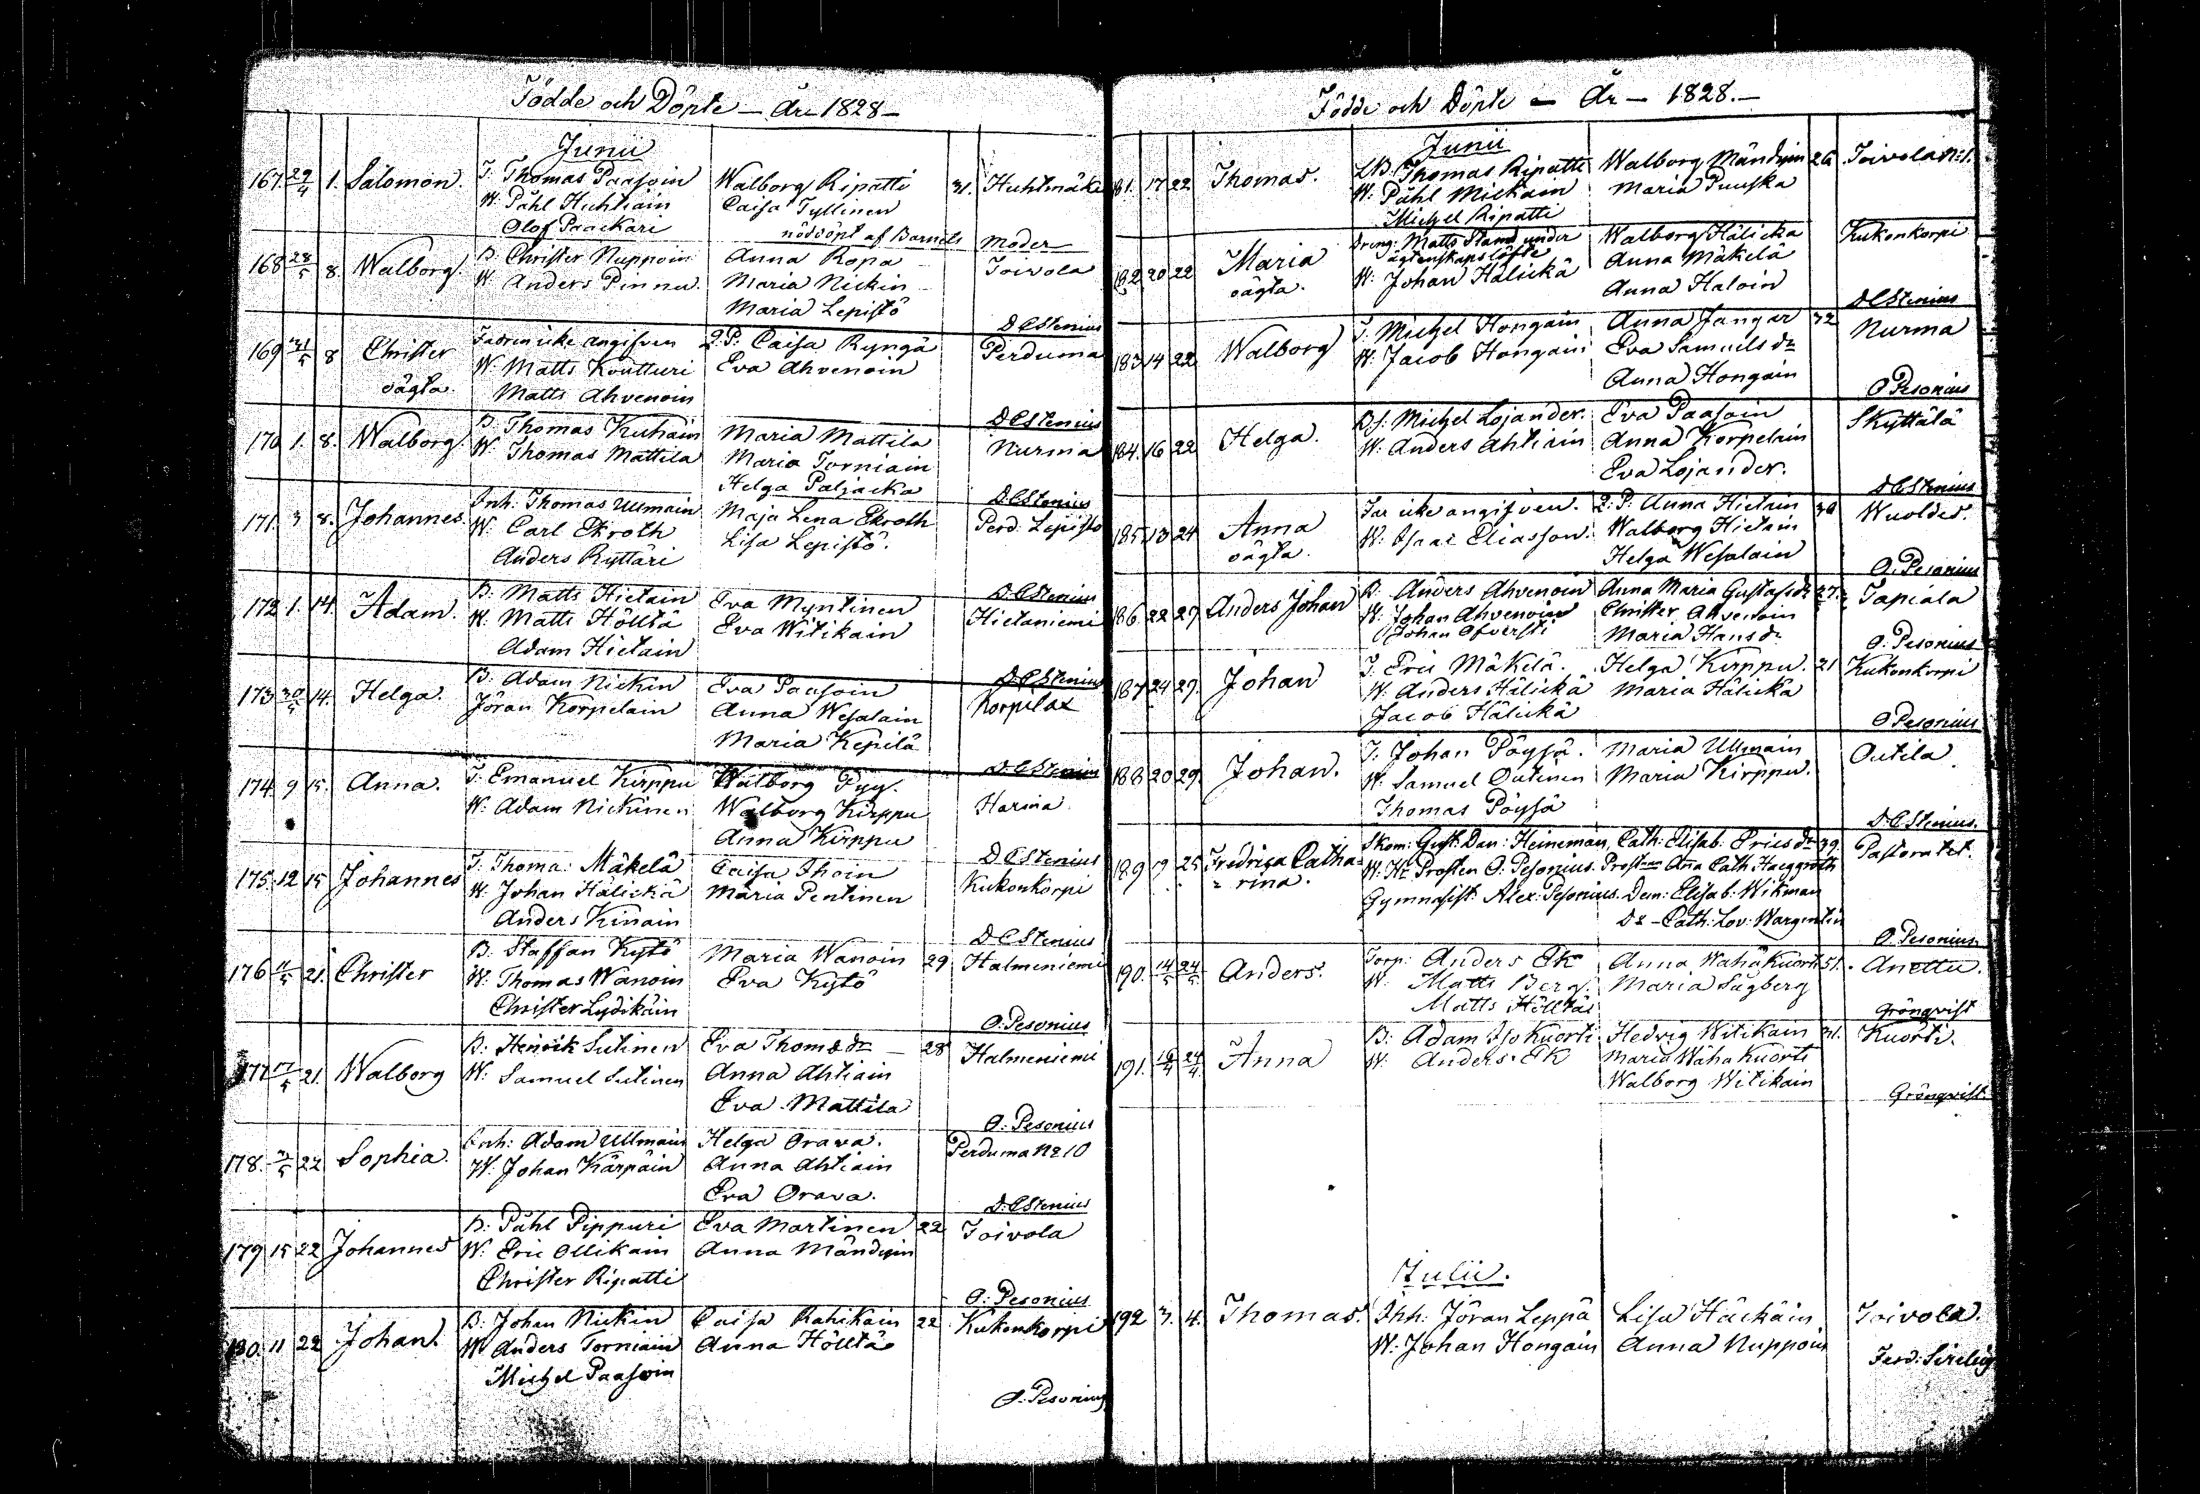 Födde och Döpte — År 1828 —
Junii
167. 29/4 1. Salomon. T. Thomas Paasoin Walborg Ripatti 31. Huhtmäki
W. Påhl Huhtiain Caisa Tyllinen
Olof Paackari nöddöpt af Barnets Moder
168 28/5 8. Walborg. B. Christer Nuppoin Anna Ropa Toivola
W. Anders Pinnu Maria Nickin
Maria Lepistö
D C Stenius
169 31/5 8 Christer Fadren icke angifven Q.P. Caisa Ryngä Perduma
oägta. W. Matts Koutturi Eva Ahvenoin
Matts Ahvenoin
D C Stenius
170 1. 8. Walborg. B. Thomas Kuhain Maria Mattila Nurma
W. Thomas Mattila Maria Torniain
Helga Paljacka
D C Stenius
171. 3 8. Johannes. Inh. Thomas Ullmain Maja Lena Ekroth Perd. Lepistö
W. Carl Ekroth Lisa Lepistö.
Anders Ryttäri
D C Stenius
172 1. 14. Adam. B. Matts Hietain Eva Myntinen Hietaniemi
W. Matts Hölttä Eva Witikain
Adam Hietain
D C Stenius
173 30/5 14. Helga. B. Adam Nickin Eva Paasoin Korpilax
Jöran Korpelain Anna Wesalain
Maria Kepilä
D C Stenius
174 9 15. Anna. T. Emanuel Kirppu Walborg Pyy. Harina
W. Adam Nickinen Walborg Kirppu
Anna Kirppu
D C Stenius
175 12 15 Johannes T. Thoma: Mäkelä Caisa Ihoin Kukonkorpi
W. Johan Hälickä Maria Pentinen
Anders Kinain
D C Stenius
176 21. Christer B. Staffan Kytö Maria Wanoin 29 Halmeniemi
W. Thomas Wanoin Eva Kytö
Christer Lydikäin
O. Pesonius
177 17/5 21. Walborg B. Henrik Sutinen Eva Thoms dr — 28 Halmeniemi
W. Samuel Sutinen Anna Ahtiain
Eva Mattila
O. Pesonius
178. 22 Sophia. Inh: Adam Ullmain Helga Orava. Perduma No 10
W. Johan Kärpäin Anna Ahtiain
Eva Orava.
D. C Stenius
179 15 22 Johannes B. Påhl Pippuri Eva Martinen 22 Toivola
W. Eric Ollikain Anna Mändyin
Christer Ripatti
O. Pesonius
180. 11 22 Johan. B. Johan Nickin Caisa Rahikain 22 Kukonkorpi
W Anders Torniain Anna Hölttä
Michel Paasoin
O. Pesonius
Födde och Döpte — År — 1828. —
Junii
181. 17 22 Thomas. LB. Thomas Ripatti Walborg Mändyin 26 Toivola No 1.
W. Påhl Mickain Maria Puuska
Michel Ripatti
182 20 22 Maria Dräng: Matts Stand under Walborg Hälicka Kukonkorpi
oägta. ägtenskapslöfte Anna Mäkelä
W. Johan Hälickä Anna Haloin
D C Stenius
183 14 22 Walborg T. Michel Hongain Anna Jangar 32 Nurma
W. Jacob Hongain Eva Samuels dr
Anna Hongain
O Pesonius
184. 16 22 Helga. Bf. Michel Lojander. Eva Paasoin Skyttälä
W. Anders Ahtiain Anna Korpelain
Eva Lojander.
D C Stenius
185. 13 24 Anna Far icke angifven. Q. P. Anna Hietain 30 Wuoldes.
oägta. W. Isaac Eliasson. Walborg Hietain
Helga Wesalain
O. Pesonius
186 22 27 Anders Johan B. Anders Ahvenoin Anna Maria Gustafs dr 27. Tapiala
W. Johan Ahvenoin Christer Ahvenoin
Johan Ofversti Maria Hans dr
O. Pesonius
187 24 29. Johan T. Eric Mäkelä. Helga Kirppu. 21 Kukonkorpi
W. Anders Hälickä Maria Hälicka
Jacob Hälickä
O Pesonius
188 20 29. Johan. T. Johan Pöysä. Maria Ullmain Outila
W. Samuel Outinen Maria Kirppu.
Thomas Pöysä
D. C Stenius.
189 19 25 Fredrica Catha- Skom: Gust: Dan: Heineman, Cath: Elisab: Erics dr 39. Pastoratet.
rina. W. Hr Prosten O. Pesonius. Prostan Ana Cath. Haeggroth
Gymnasist: Alex: Pesonius. Dem: Elisab: Wikman
Do — Cath: Lov: Wargentin
O. Pesonius.
190. 14/5 24/5 Anders. Torp: Anders Ek Anna Wahäkuorti 51. Anettu.
W. Matts Berg. Maria Sägberg
Matts Hölttä
Grönqvist
191. 19/4 24/4 Anna B: Adam Iso Kuorti Hedvig Witikain 31. Kuorti.
W. Anders Ek Maria Wäha Kuorti
Walborg Witikain
Grönqvist
Julii.
192 3. 4. Thomas. Inh: Jöran Leppä Lisa Häckäin Toivola.
W. Johan Hongain Anna Nuppoin
Ferd: Sirelius